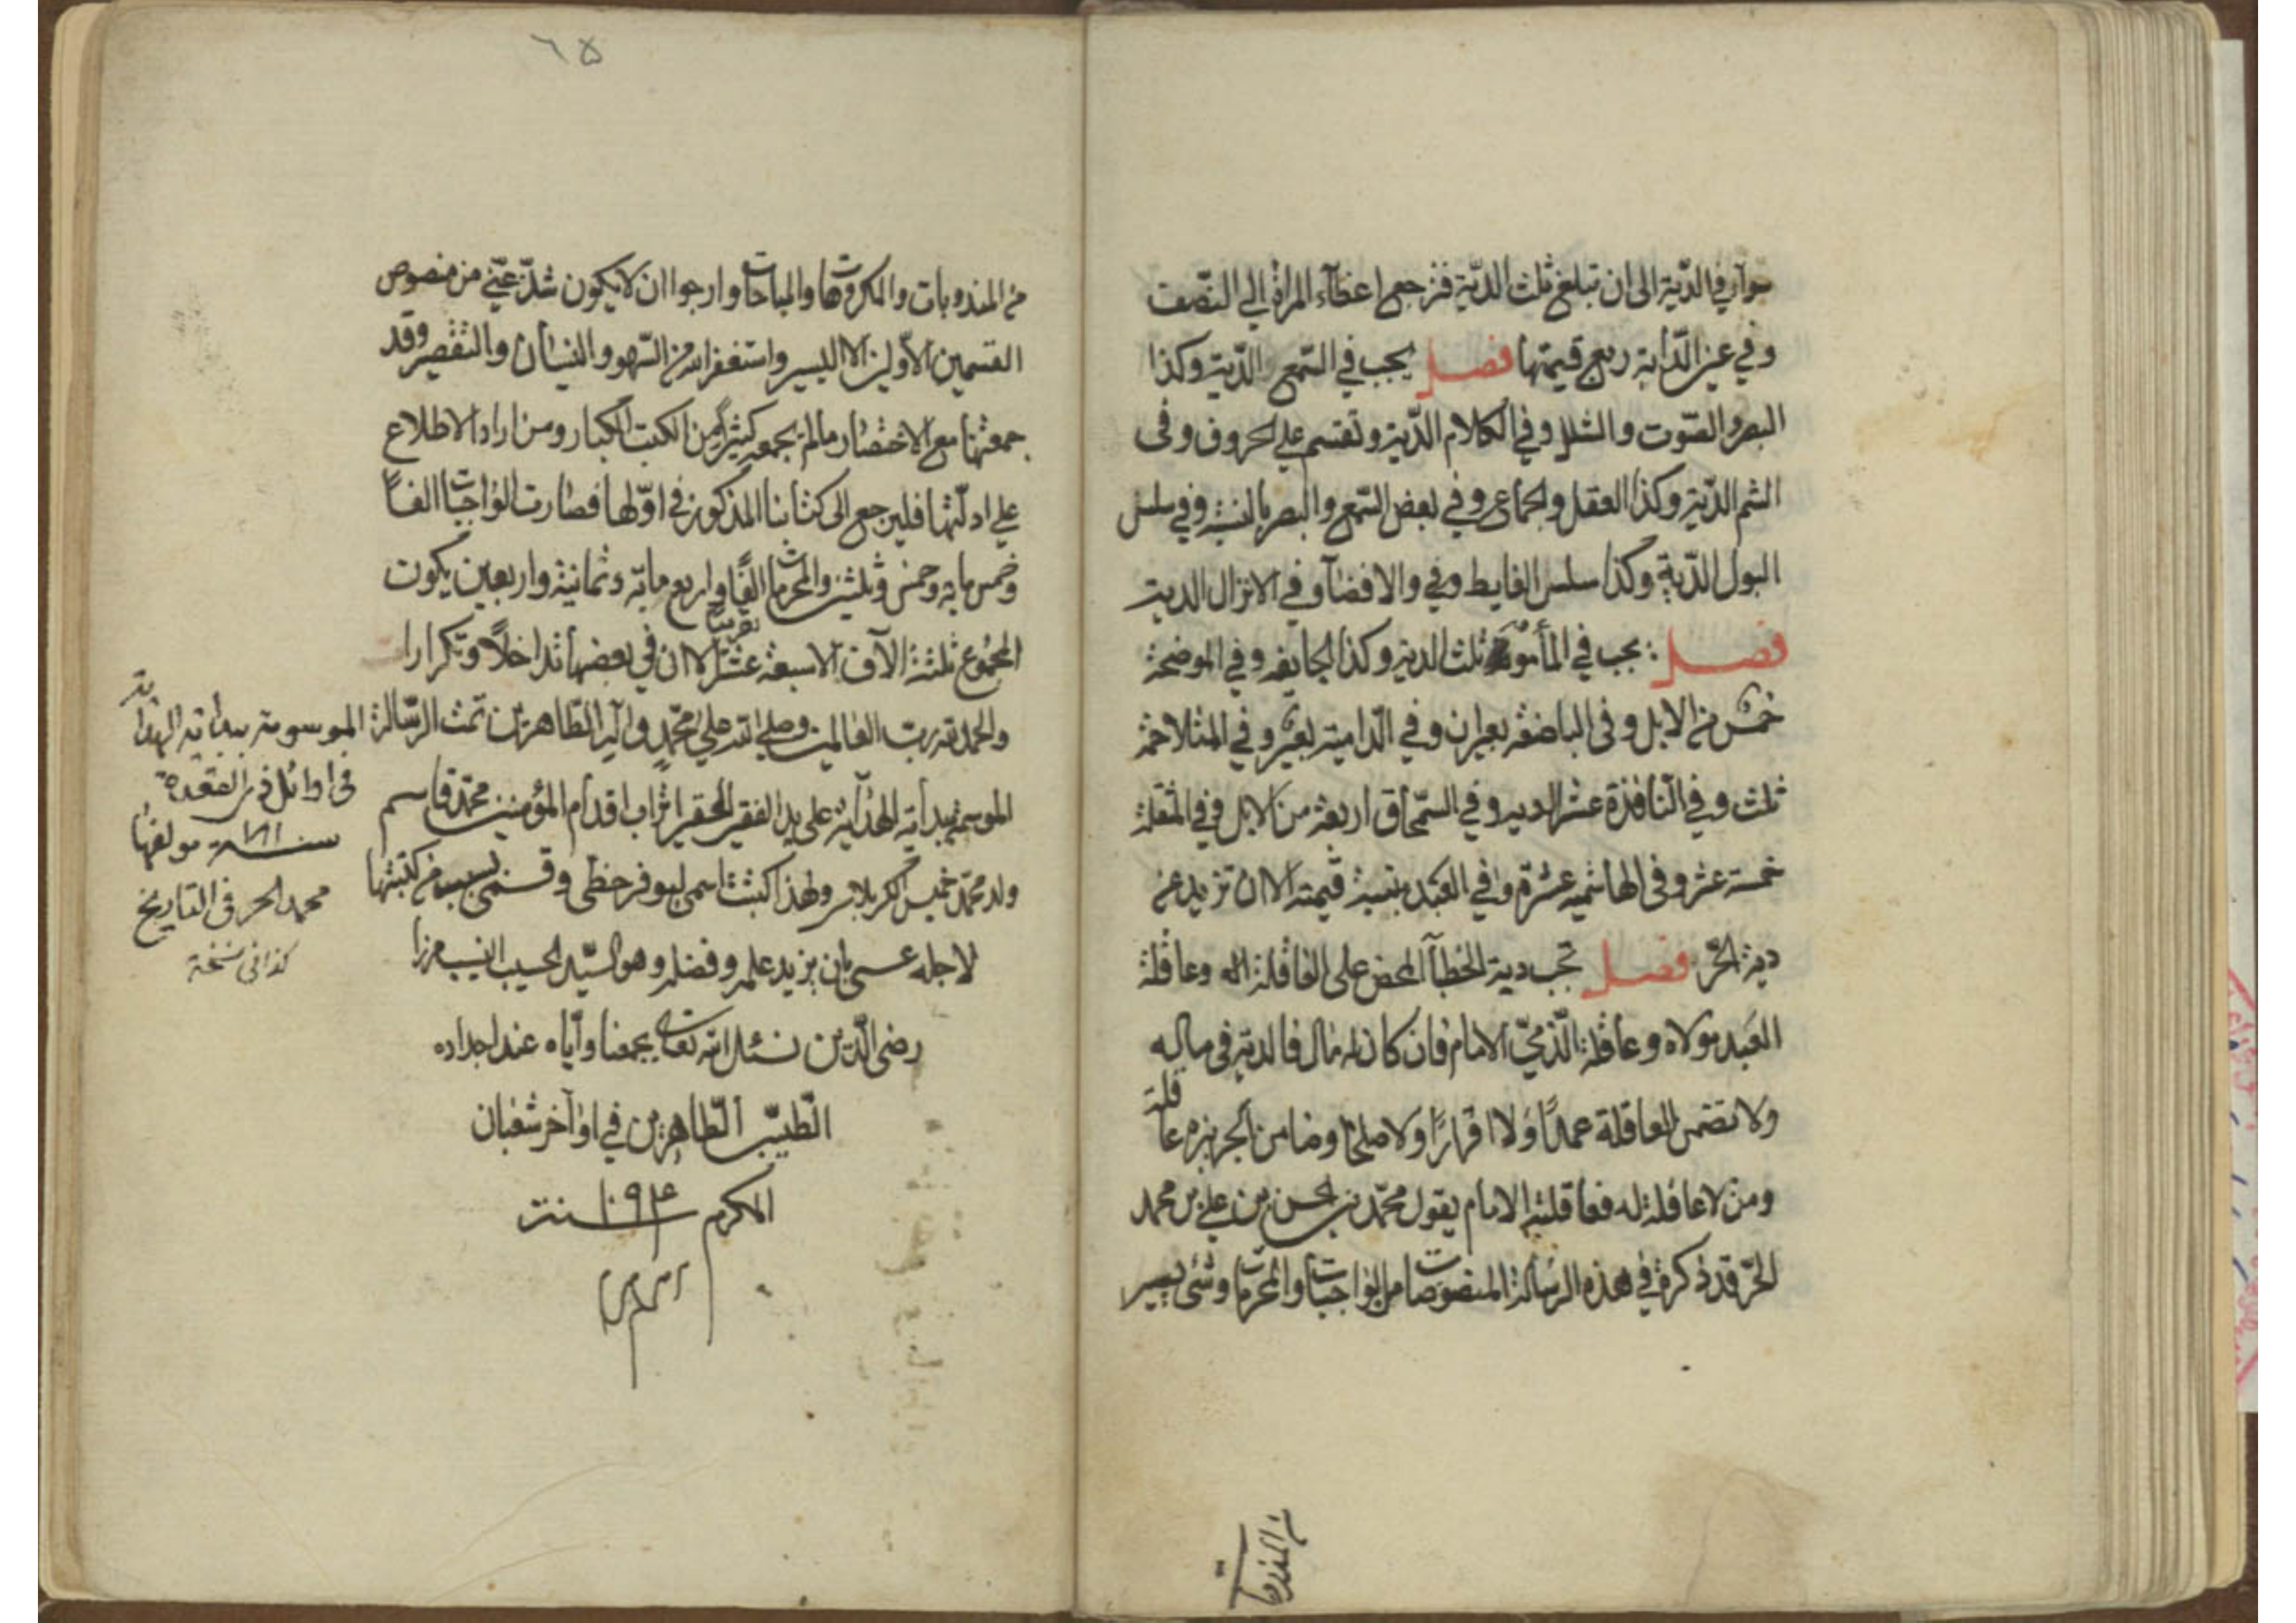 سوآء في الدّية الى ان تبلغ ثلث الدّية فترجع اعضآء المرأة الي النّصف
وفي عين الدّابة ربع قيمتها فصل يجب في السّمع الدّية وكذا
البصر والصّوت والشلل وفي الكلام الدّية وتقسم علي الحروف وفى
الشم الدّية وكذا العقل والجماع وفي بعض السّمع والبصر بالنسبة وفي سلس
البول الدّية وكذا سلس الغايط وفي والافضآء وفي الانزال الدية
فصل يجب في المأمومة ثلث الدية وكذا الجايفة وفي الموضحة
خمس من الابل وفى الباضعة بعيران وفي الدّامية بعير وفي المتلاحمة
ثلث وفي النّافذة عشر الدية وفي السّمحاق اربعة من الابل وفي المنقلة
خمسة عشر وفى الهاشمة عشرة وفي العبد بنسبة قيمته الا ان تزيد عن
دية الحّر فصل تجب دية الخطآء المحض على العاقلة وعاقلة
العبد مولاه وعاقلة الّذمّي الامام فان كان له مال فالدية في ماله
ولا تضمن العاقلة عمدًا ولا اقرارًا ولا صلحًا وضامن الجريرة عاقلة
ومن لا عاقلة له فعاقلته الامام يقول محمّد بن الحسن بن علي بن محمد
الحّر قد ذكرة في هذه الرسالة المنصوصات من الواجبات والمحرمات وشئ يسير
من المندوبات
٦٥
من المندوبات والمكروهات والمباحات وارجوا ان لا يكون شذّ عنّي من منصوص
القسمين الاوّلين الا اليسير واستغفر الله من السّهو والنسيان والتقصير وقد
جمعتها مع الاختصار مالم يجمعه كثير من الكتب الكبار ومن اراد الاطلاع
علي ادلّتها فليرجع الى كتابنا المذكور في اوّلها فصارت الواجبات الفًا
وخمس مايه وخمس وثلثين والمحرمات الفًا واربع مايّه وثمانية واربعين يكون
المجموع ثلثة الآف الا سبعة عشر تقريبا الا ان في بعضها تداخلًا وتكرارا
والحمد لله ربّ العالمين وصلي الله علي محمّدٍ وآله الطّاهرين تمت الرّسالة
الموسمة ببداية الهداية على يد الفقير الحقير تراب اقدام المؤمنين محمّد قاسم
ولد محمّد خميس الكربلائي ولهذا كتبت اسمي ليوفر حظى وقسمى بسبب من كتبتها
لاجله عسى بان يزيد علمه وفضله وهو السّيد الحسيب النسيب ميرزا
رضى الدّين نسئل الله تعالى يجمعنا وآياه عند اجداده
الطيّبين الطّاهرين في اوآخر شعبان
المكرم سنة ١٠٩٤
الموسومة ببداية الهداية
فى اوائل ذى القعدة
سنة مولفها
محمد الحر فى التاريخ
كذا فى نسخة